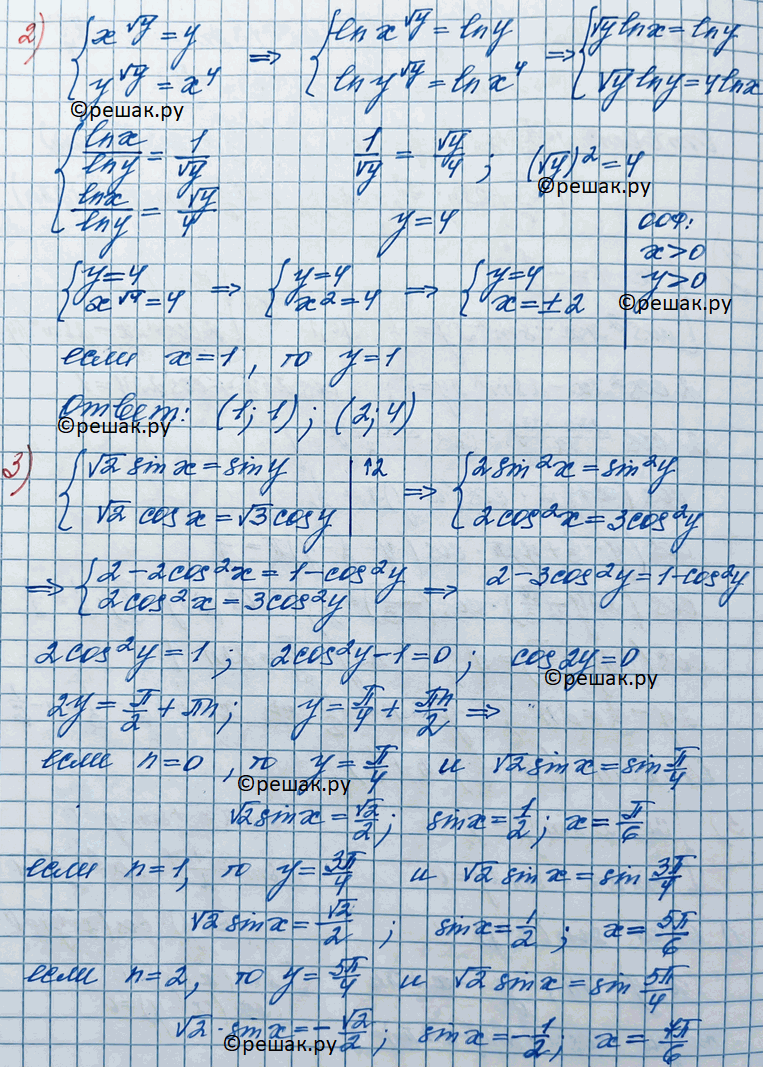 2) { x^√y = y ⇒ { ln x^√y = ln y ⇒ { √y ln x = ln y
{ y^√y = x⁴ { ln y^√y = ln x⁴ { √y ln y = 4 ln x
©решак.ру
{ ln x / ln y = 1/√y    1/√y = √y/4 ; (√y)² = 4
©решак.ру
{ ln x / ln y = √y/4    y = 4
ООФ:
x > 0
y > 0
{ y = 4 ⇒ { y = 4 ⇒ { y = 4
{ x^√4 = 4 { x² = 4 { x = ±2
©решак.ру
если x = 1, то y = 1
Ответ: (1; 1) ; (2; 4)
©решак.ру
3) { √2 sin x = sin y | ↑2 ⇒ { 2 sin²x = sin²y
{ √2 cos x = √3 cos y | { 2cos²x = 3cos²y
⇒ { 2 - 2cos²x = 1 - cos²y ⇒ 2 - 3cos²y = 1 - cos²y
{ 2cos²x = 3cos²y
2cos²y = 1 ; 2cos²y - 1 = 0 ; cos 2y = 0
©решак.ру
2y = π/2 + πn ; y = π/4 + πn/2 ⇒
если n = 0, то y = π/4 и √2 sin x = sin π/4
©решак.ру
√2 sin x = √2/2 ; sin x = 1/2 ; x = π/6
если n = 1, то y = 3π/4 и √2 sin x = sin 3π/4
√2 sin x = -√2/2 ; sin x = 1/2 ; x = 5π/6
если n = 2, то y = 5π/4 и √2 sin x = sin 5π/4
√2 · sin x = -√2/2 ; sin x = -1/2 ; x = 7π/6
©решак.ру